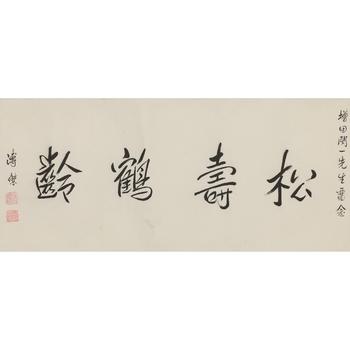 增田閑一先生靈念
松壽鶴齡
溥傑